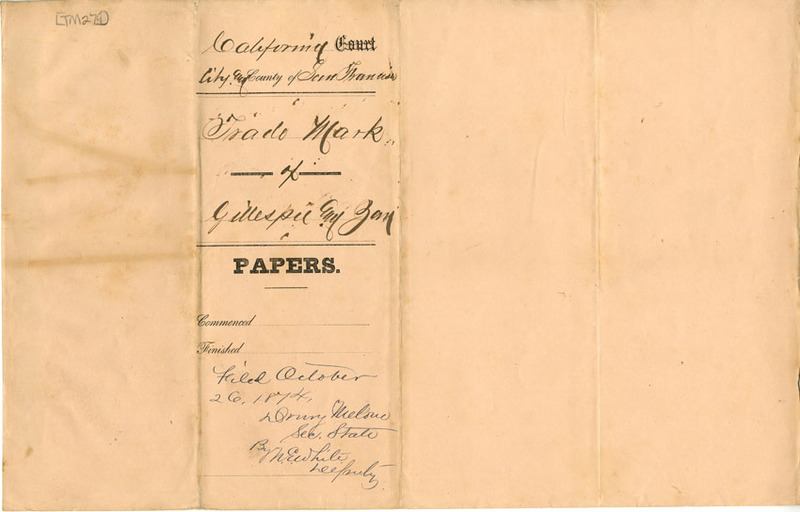 [TM274]
California Court
City & County of San Francisco
Trade Mark
of
Gillespie & Zan
PAPERS.
Commenced
Finished
Filed October
26, 1874,
Drury Melone
Sec. State
By
White
Deputy